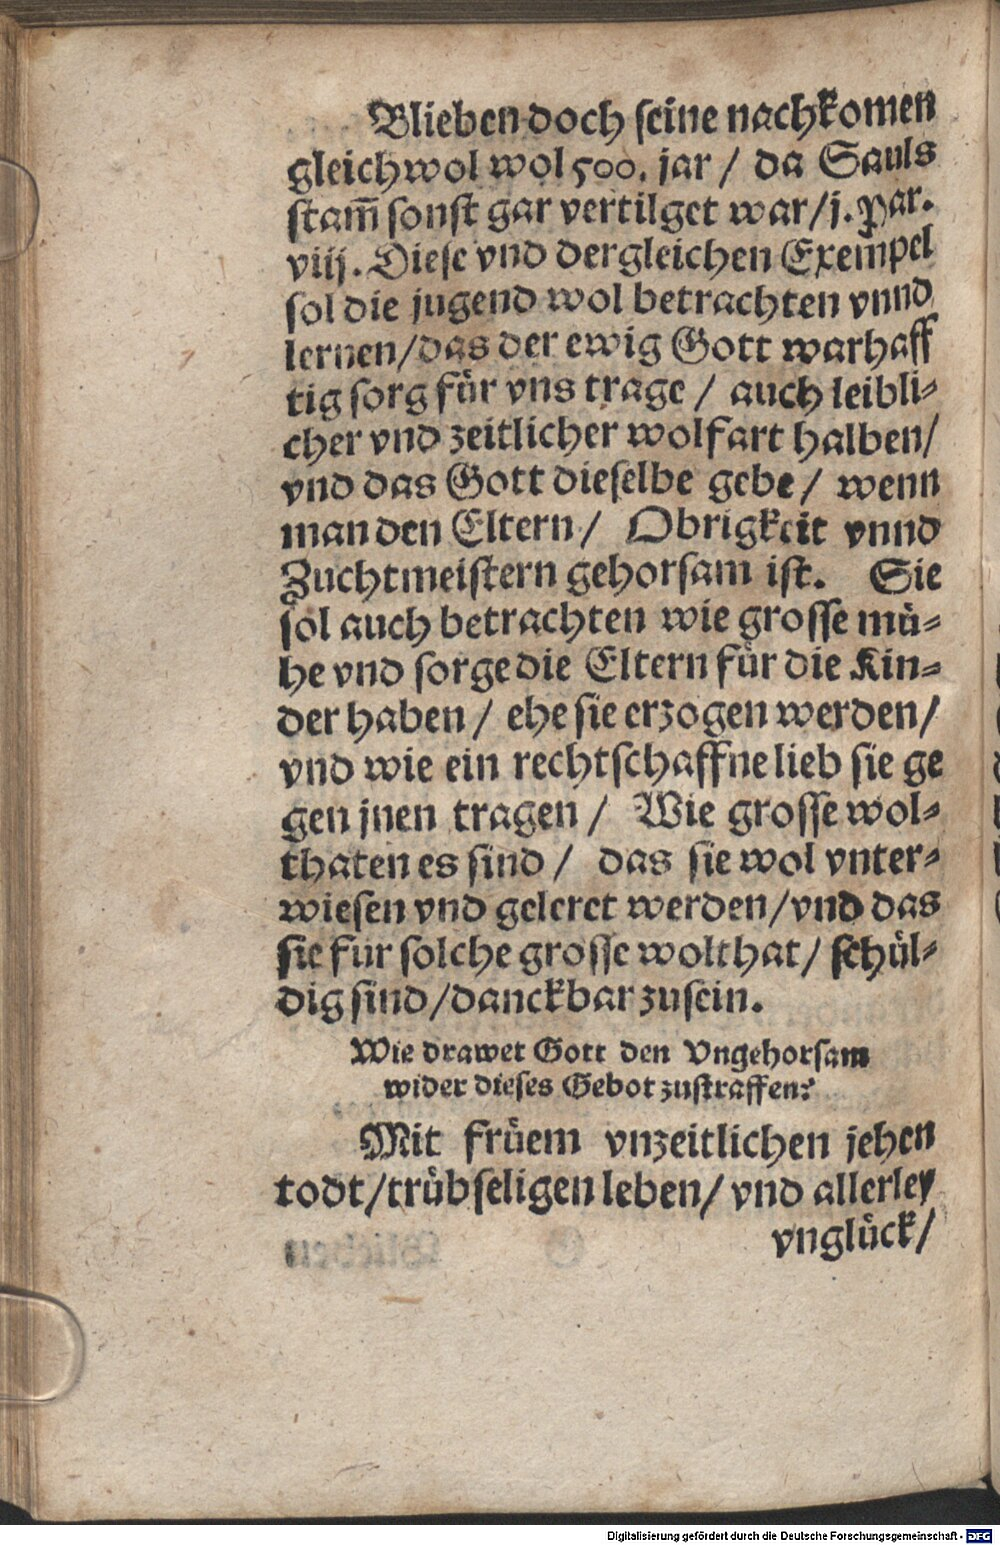 Blieben doch seine nachkomen
gleichwol wol 500. jar / da Sauls
stam̃ sonst gar vertilget war/j. Par.
viij. Diese vnd dergleichen Exempel
sol die jugend wol betrachten vnnd
lernen/das der ewig Gott warhaff
tig sorg für vns trage / auch leibli-
cher vnd zeitlicher wolfart halben/
vnd das Gott dieselbe gebe / wenn
man den Eltern / Obrigkeit vnnd
Zuchtmeistern gehorsam ist. Sie
sol auch betrachten wie grosse mü-
he vnd sorge die Eltern für die Kin-
der haben / ehe sie erzogen werden/
vnd wie ein rechtschaffne lieb sie ge
gen jnen tragen / Wie grosse wol-
thaten es sind / das sie wol vnter-
wiesen vnd geleret werden/vnd das
sie fur solche grosse wolthat/ schül-
dig sind/danckbar zusein.
Wie drawet Gott den Vngehorsam
wider dieses Gebot zustraffen?
Mit früem vnzeitlichen jehen
todt/trübseligen leben/ vnd allerley
vnglück/
Digitalisierung gefördert durch die Deutsche Forschungsgemeinschaft - DFG